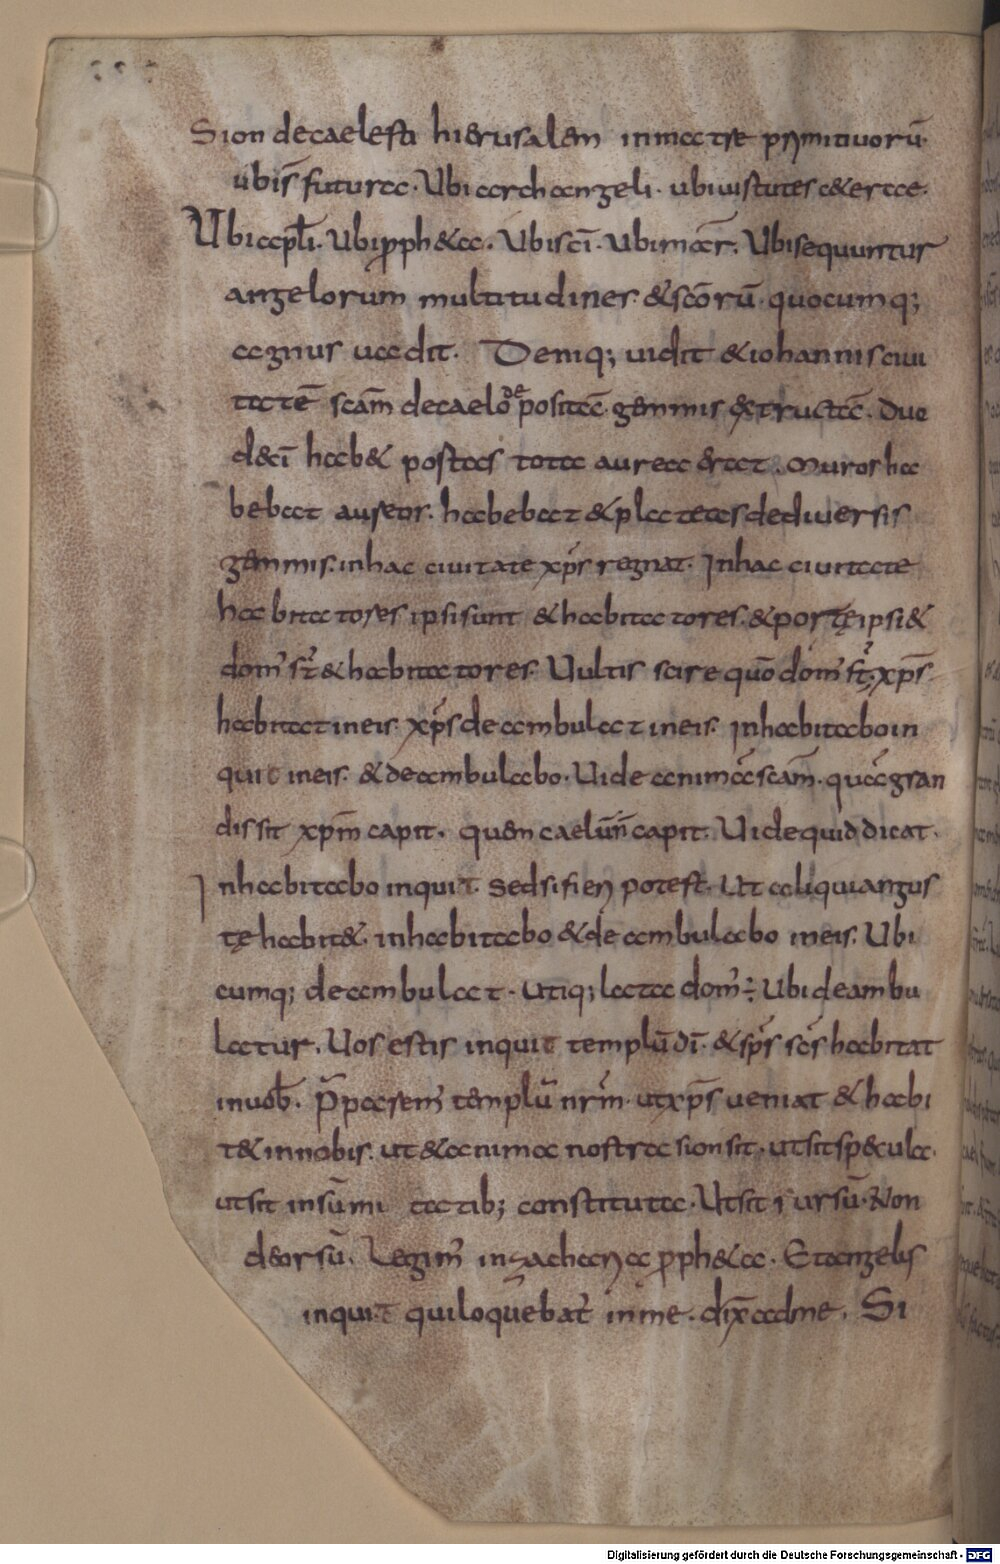 Sion de caelesti hierusalem in matre primitiuorũ
ubi sp̄s futura. Ubi archangeli. ubi uirtutes c&erae.
Ubi ap̄li. Ubi p̄ph&a. Ubi sc̄i. Ubi mar̄. Ubi sequuntur
angelorum multitudines & scōrũ. quocumq;
agnus uadit. Deniq; uidit & iohannis ciui
tatē scām de caelo depositā gemmis extructā. Duo
decī hab& portas totae aureae erat. Muros ha
bebat aureos. habebat & plateas de diuersis
gemmis. in hac ciuitate xp̄s regnat. In hac ciuitate
habitatores ipsi sunt & habitatores. & portę ipsi &
dom' s̄t & habitatores. Uultis scire quō dom' s̄t. xp̄s
habitat in eis. xp̄s deambulat in eis. Inhabitabo in
quit in eis. & deambulabo. Uide animā scām. quā gran
dis sit xp̄m capit. quem caelũ ñ capit. Uide quid dicat.
Inhabitabo inquit. Sed si fieri potest. Ut aliqui angus
tę habit&. inhabitabo & deambulabo in eis. Ubi
cumq; deambulat. Utiq; lata dom' ÷ Ubi deambu
latur. Uos estis inquit templũ dī. & sp̄s sc̄s habitat
in uob̄. P̄paremꝰ templũ nr̄m. ut xp̄s ueniat & habi
t& in nobis. ut & anima nostra sion sit. ut sit specula.
ut sit in sũmitatib; constituta. Ut sit sursũ. Non
deorsũ. Legim' in zacharia p̄ph&a. Et angelus
inquit qui loquebat' in me. dix̄ ad me. Si
Digitalisierung gefördert durch die Deutsche Forschungsgemeinschaft - DFG